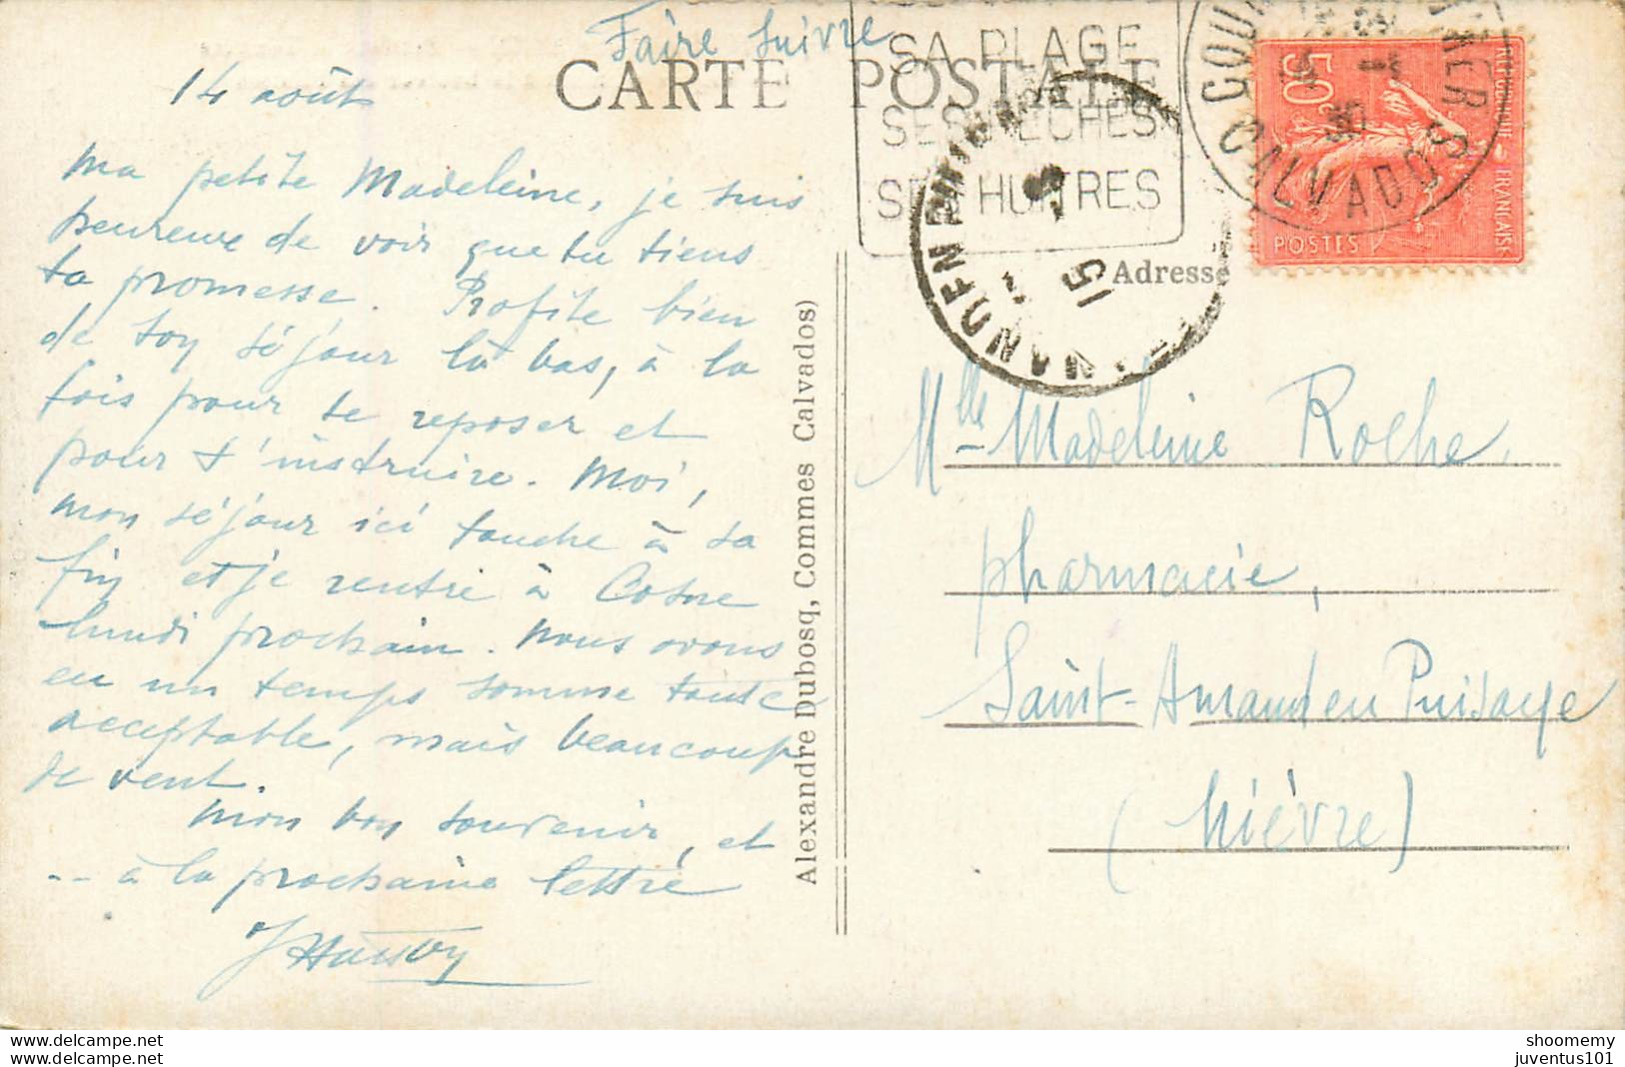 Faire suivre
CARTE POSTALE
14 août
Ma petite Madeleine, je suis
heureuse de voir que tu tiens
ta promesse. Profite bien
de ton séjour là bas, à la
fois pour te reposer et
pour t'instruire. Moi,
mon séjour ici touche à sa
fin et je rentre à Cosne
lundi prochain. Nous avons
eu un temps somme toute
acceptable, mais beaucoup
de vent.
Mon bon souvenir, et
-- à la prochaine lettre
Alexandre Dubosq, Commes Calvados)
SA PLAGE
SES PÊCHES
SES HUITRES
CALVADOS
50c
REPUBLIQUE FRANÇAISE
POSTES
15
Adresse
Mlle Madeleine Roche,
pharmacie,
Saint-Amand en Puisaye
(Nièvre)
shoomemy
juventus101